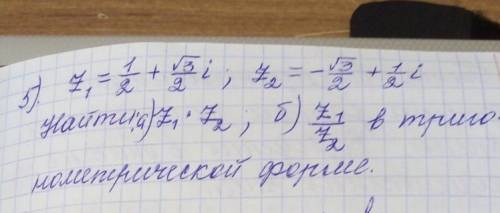 5). z₁ = 1/2 + √3/2 i ; z₂ = -√3/2 + 1/2 i
Найти: а) z₁ · z₂ ; б) z₁/z₂ в триго-
нометрической форме.